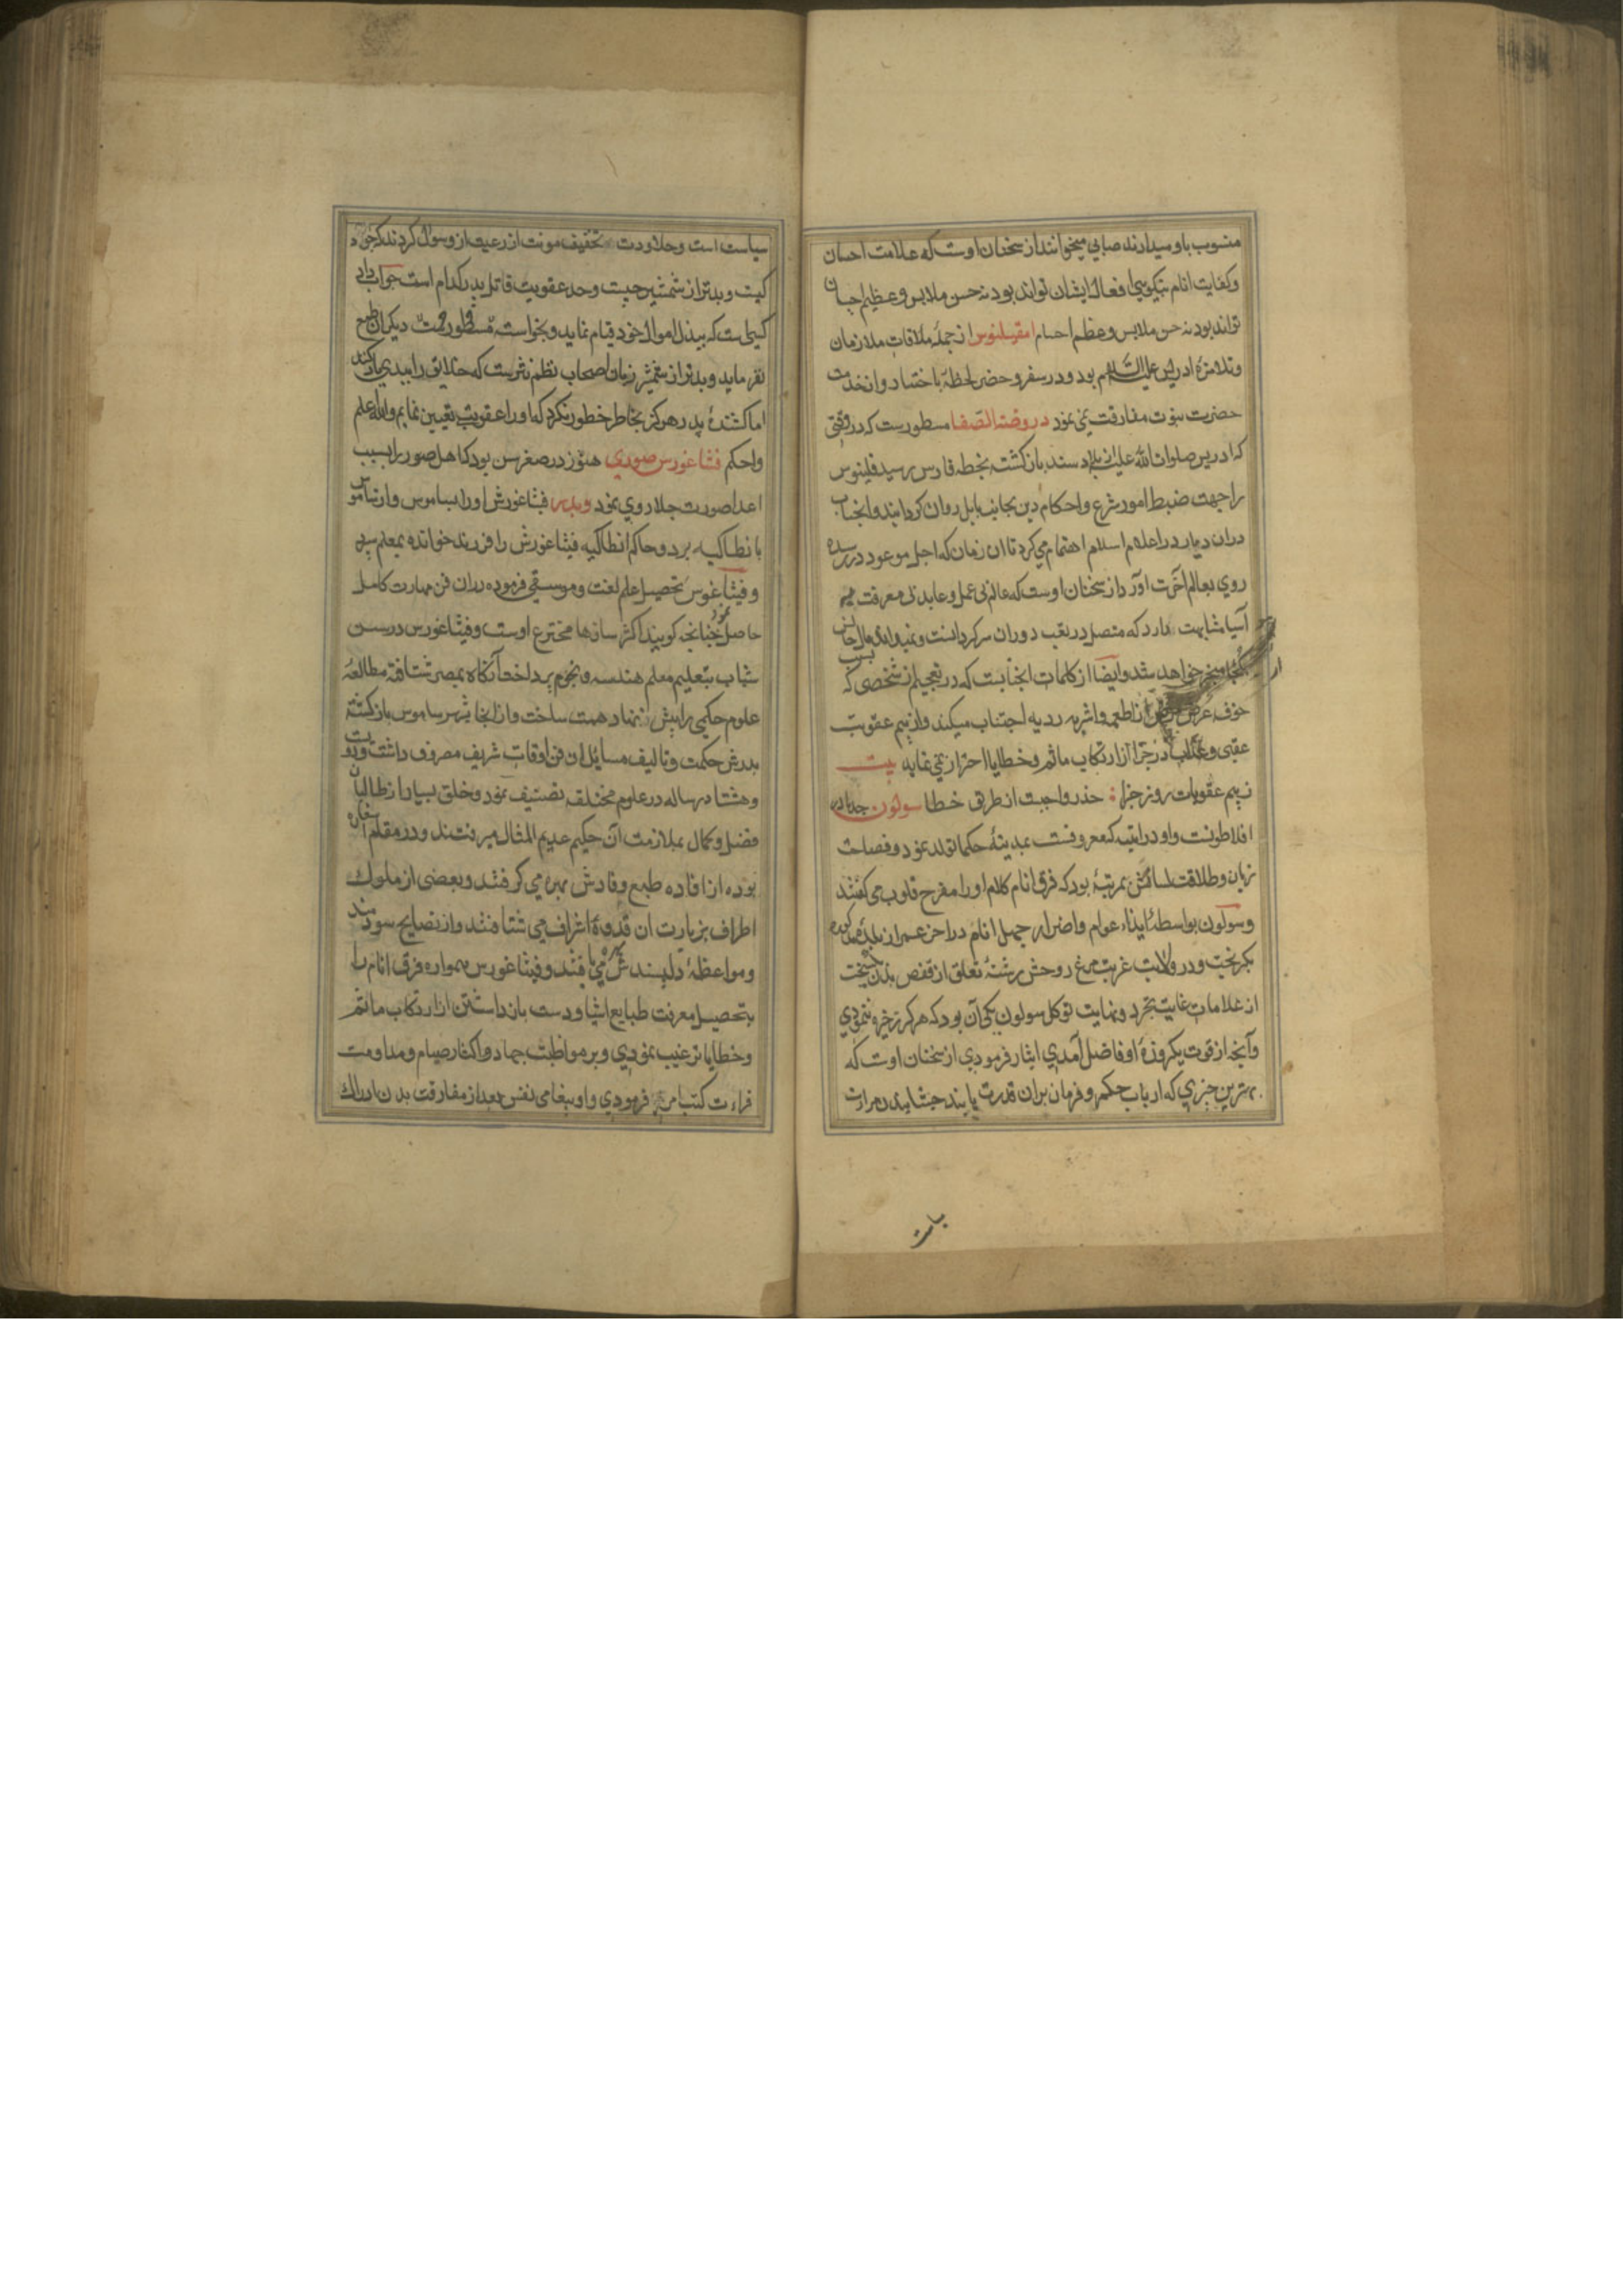 منسوب باو میدارند صابی میخوانند از سخنان اوست که علامت احسان
وکفایت انام بنیکویی افعال ایشان تواند بود نه حسن ملابس و عظیم اجسان
تواند بود نه حسن ملابس و عظم احسام امقیلنوس از جمله ملاقات ملازمان
وتلامزهٔ ادریس علیه السلام بود و در سفر و حضر لحظهٔ باختیار از خدمت
حضرت نبوت مفارقت نمی نمود در روضة الصفا مسطورست که در وقتی
که ادریس صلوات الله علیه از بلاد سند باز کشته بخطه فارس رسید فلینوس
را جهت ضبط امور شرع و احکام دین بجانب بابل روان کردانید و انجناب
دران دیار در اعلام اسلام اهتمام می کرد تا ان زمان که اجل موعود در رسیده
روی بعالم آخرت آورد از سخنان اوست که عالم بی عمل و عابد بی معرفت
آسیا مشابهت دارد که متصل در تعب دوران سرکردانست و نمیداند مال حالش
بکجا منجر خواهد شد و ایضا از کلمات انجنابست که در تعجبم از شخصی که بسبب
خوف عرض مرض از اطعمه و اشربه ردیه اجتناب میکند و از بیم عقوبت
عقبی و عذاب روز جزا از ارتکاب ماثم و خطایا احتراز نمی نماید بیت
ز بیم عقوبات روز جزا حذر واجبست از طریق خطا سولون جد مادر
افلاطونست و او در اثینیه که معروفست بمدینهٔ حکما تولد نمود و فصاحت
زبان و طلاقت لسانش بمرتبهٔ بود که فرق انام کلام او را مفرح قلوب می کفتند
وسولون بواسطهٔ ایذاء عوام و اضرار جهل انام در اخر عمر از بلدهٔ مذکوره
بکریخت و در ولایت غربت مرغ روحش رشتهٔ تعلق از قفص بدن بکسیخت
از علامات غایت تجرد و نهایت توکل سولون یکی آن بود که هرکز ذخیره ننمودی
وآنچه از قوت یکروزهٔ او فاضل آمدی ایثار فرمودی از سخنان اوست که
بهترین چیزی که ارباب حکم و فرمان بران قدرت یابند چشانیدن مرارت
سیاست
سیاست است و حلاوت تخفیف مونت از رعیت از و سوال کردند که جواد
کیست و بدتر از شمشیر چیست و حد عقوبت قاتل پدر کدام است جواب داد
کسی است که ببذل اموال خود قیام نماید و بخواسته دیکران طمع
نفرماید و بدتر از شمشیر زبان اصحاب نظم و نثرست که خلایق را ببدی یاد کنند
اما کشندهٔ پدر هرکز بخاطر خطور نکرد که او را عقوبت تعیین نمایم والله اعلم
واحکم فثاغورس صوری هنوز در صغر سن بود که اهل صور را بسبب
اعدا صورت جلا روی نمود و پدر فیثاغورش او را بساموس و از ساموس
بانطاکیه برد و حاکم انطاکیه فیثاغورش را فرزند خوانده بمعلم سپرد
وفیثاغورس تحصیل علم لغت و موسیقی فرموده دران فن مهارت کامل
حاصل نمود چنانچه کویند اکثر سازها مخترع اوست و فیثاغورس در سن
شباب بتعلیم معلم هندسه و نجوم پرداخت آنکاه بمصر شتافته مطالعهٔ
علوم حکمی را پیش نهاد همت ساخت و از انجا بشهر ساموس باز کشته
بدرس حکمت و تالیف مسایل ان فن اوقات شریف مصروف داشت و دویست
وهشتاد رساله در علوم مختلفه تصنیف نمود و خلق بسیار از طالبان
فضل و کمال بملازمت آن حکیم عدیم المثال میرفتند و در مقام استفاده
بوده از افاده طبع وقادش بهره می کرفتند و بعضی از ملوک
اطراف بزیارت ان قدوهٔ اشراف می شتافتند و از نصایح سودمند
ومواعظهٔ دلپسندش بهره می یافتند و فیثاغورس همواره فرق انام را
بتحصیل معرفت طبایع اشیا و دست باز داشتن از ارتکاب ماثم
وخطایا ترغیب نمودی و بر مواظبت جهاد و اکثار صیام و مداومت
قراءت کتب امر فرمودی و او ببقای نفس بعد از مفارقت بدن ادراک